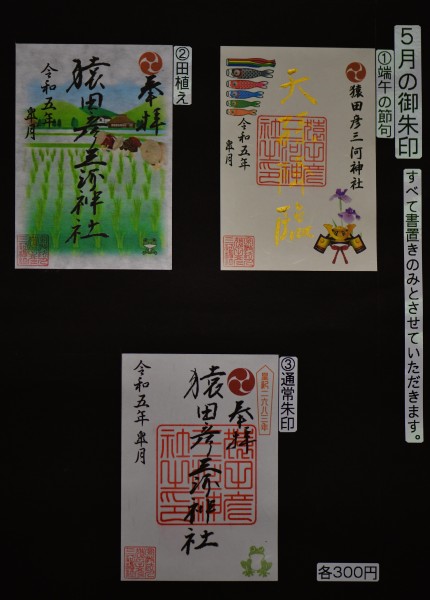 5月の御朱印
すべて書置きのみとさせていただきます。
①端午の節句
猿田彦三河神社
天孫降臨
令和五年
皐月
②田植え
奉拝
猿田彦三河神社
令和五年
皐月
③通常朱印
皇紀二六八三年
奉拝
猿田彦三河神社
令和五年
皐月
各300円